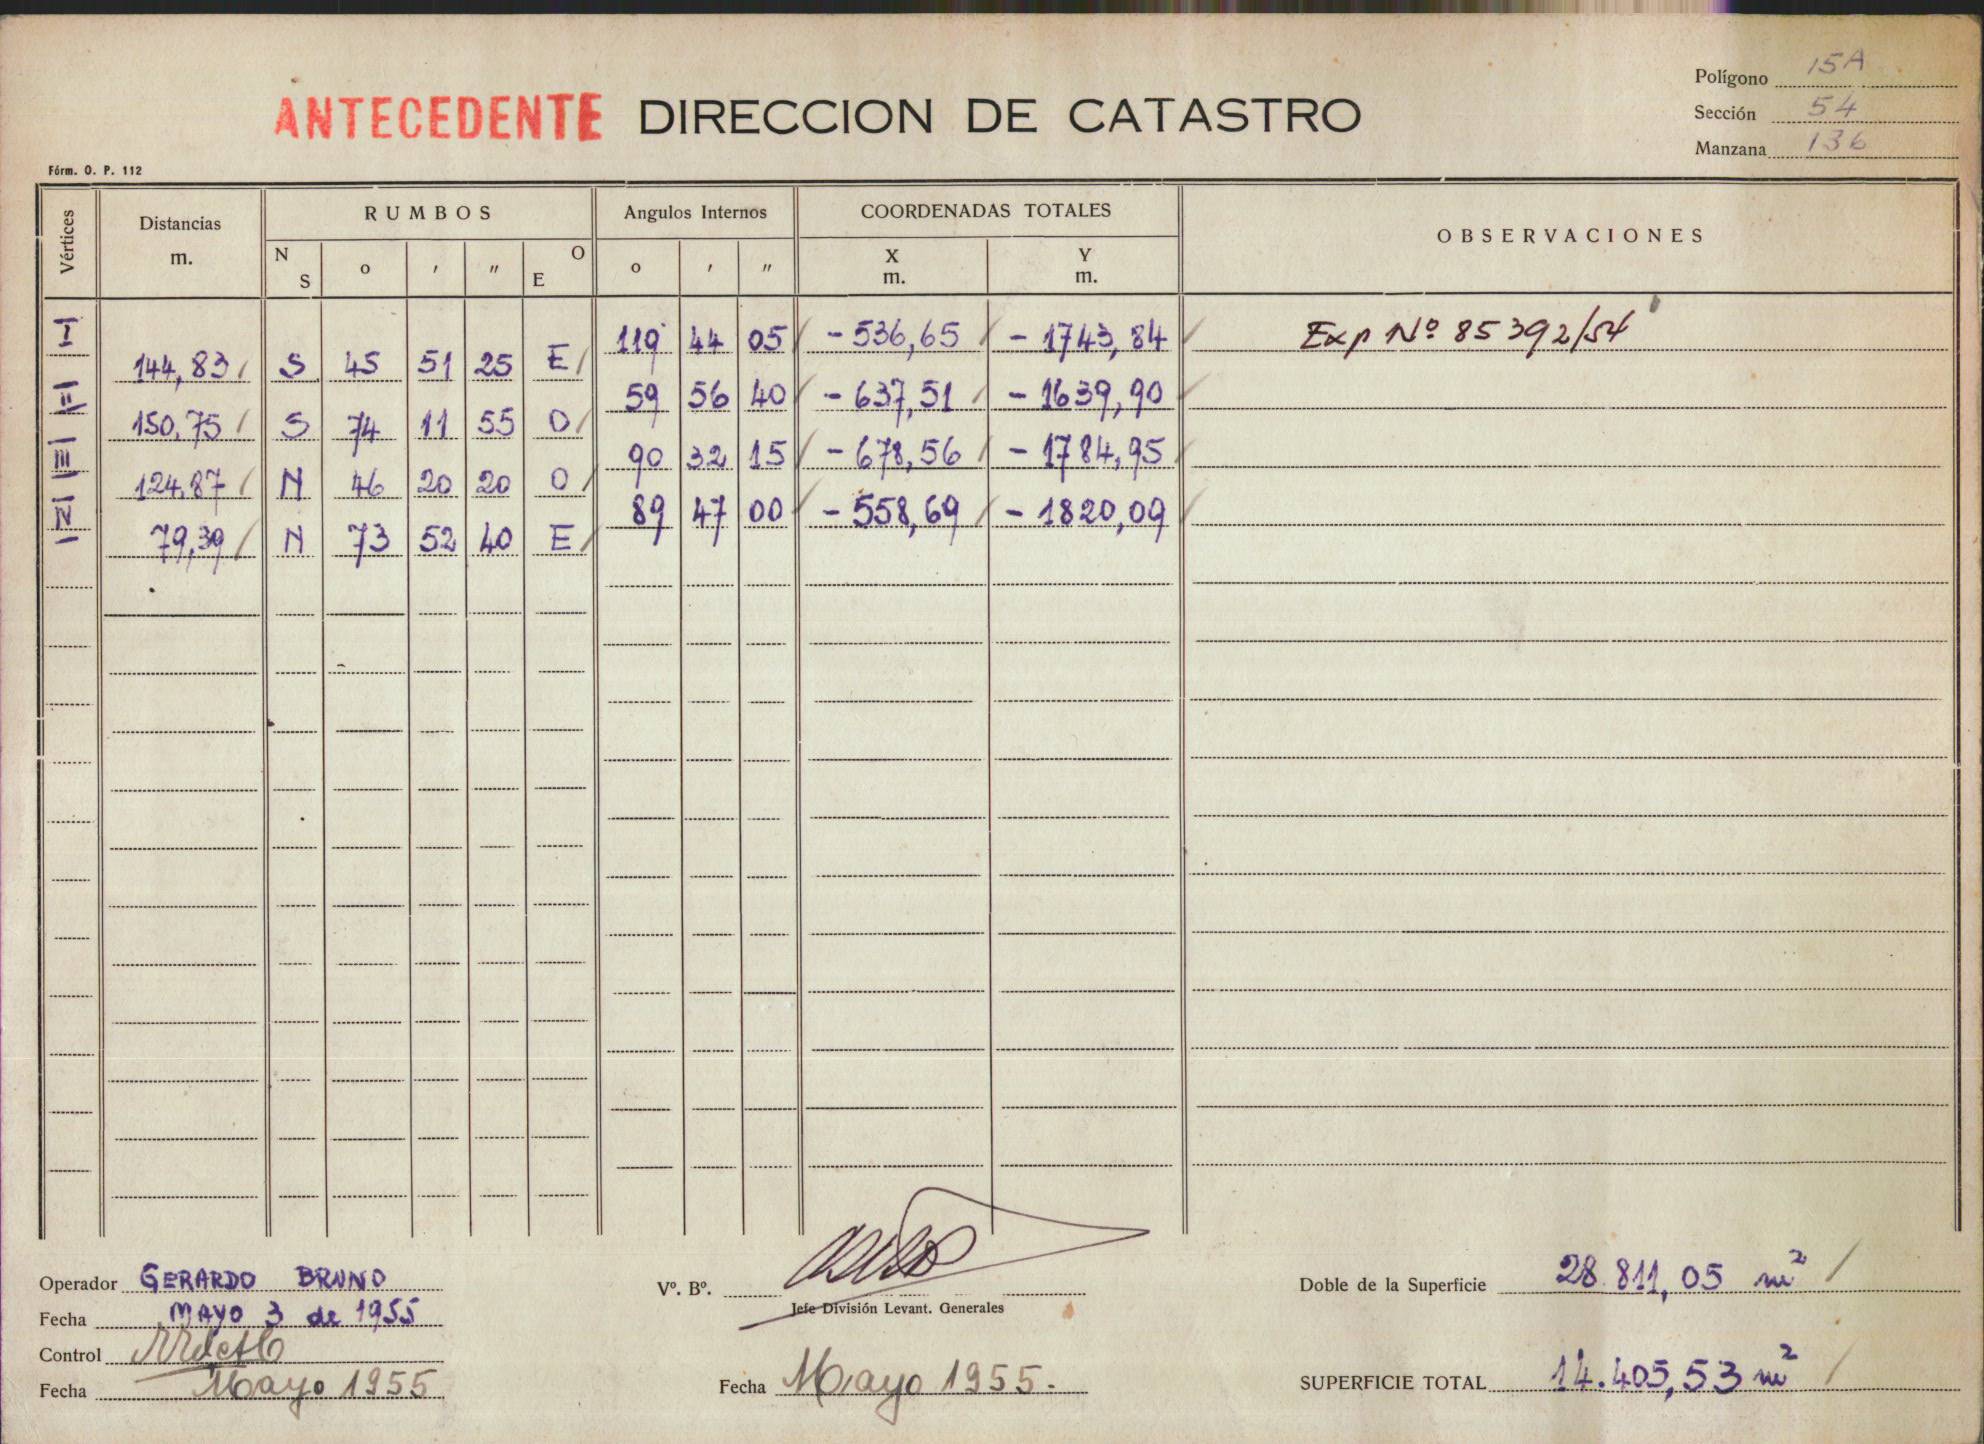 Polígono 15A
ANTECEDENTE DIRECCION DE CATASTRO
Sección 54
Manzana 136
Fórm. O. P. 112
Vértices Distancias m. RUMBOS Angulos Internos COORDENADAS TOTALES OBSERVACIONES
N S o ' " O E o ' " X m. Y m.
I 119 44 05 - 536,65 - 1743,84 Exp Nº 85392/54
144,83 S 45 51 25 E
II 59 56 40 - 637,51 - 1639,90
150,75 S 74 11 55 O
III 90 32 15 - 678,56 - 1784,95
124,87 N 46 20 20 O
IV 89 47 00 - 558,69 - 1820,09
79,39 N 73 52 40 E
Operador GERARDO BRUNO
Vº. Bº.
Doble de la Superficie 28.811,05 m²
Jefe División Levant. Generales
Fecha MAYO 3 de 1955
Control
Fecha Mayo 1955
Fecha Mayo 1955.
SUPERFICIE TOTAL 14.405,53 m²